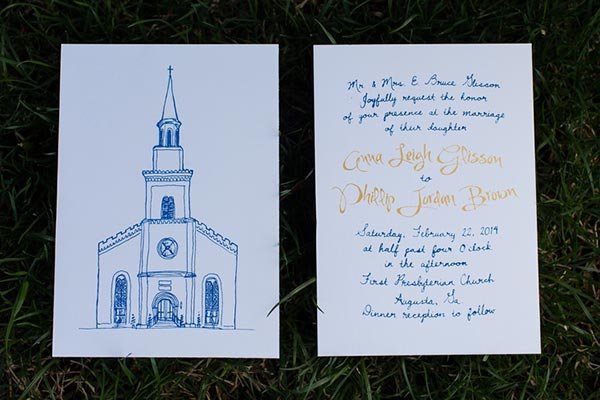 Mr. & Mrs. E. Bruce Glisson
Joyfully request the honor
of your presence at the marriage
of their daughter
Anna Leigh Glisson
to
Phillip Jordan Brown
Saturday, February 22, 2014
at half past four O'clock
in the afternoon
First Presbyterian Church
Augusta, Ga.
Dinner reception to follow